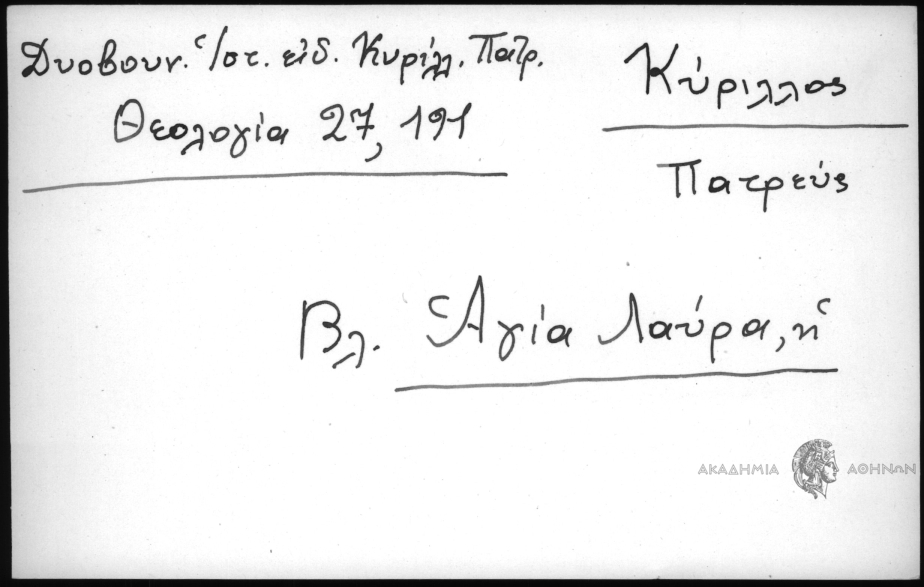 Δυοβουν. Ἱστ. εἰδ. Κυρίλλ. Πατρ.
Θεολογία 27, 191
Κύριλλος
Πατρεύς
Βλ. Ἁγία Λαύρα, ἡ
ΑΚΑΔΗΜΙΑ ΑΘΗΝΩΝ